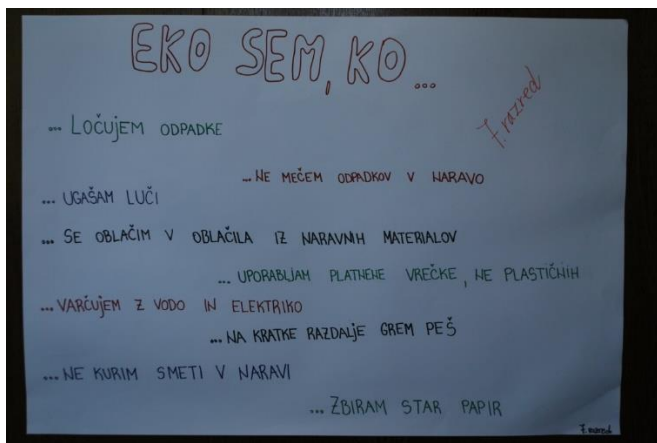 EKO SEM, KO...
7. razred
... LOČUJEM ODPADKE
... NE MEČEM ODPADKOV V NARAVO
... UGAŠAM LUČI
... SE OBLAČIM V OBLAČILA IZ NARAVNIH MATERIALOV
... UPORABLJAM PLATNENE VREČKE, NE PLASTIČNIH
... VARČUJEM Z VODO IN ELEKTRIKO
... NA KRATKE RAZDALJE GREM PEŠ
... NE KURIM SMETI V NARAVI
... ZBIRAM STAR PAPIR
7. razred